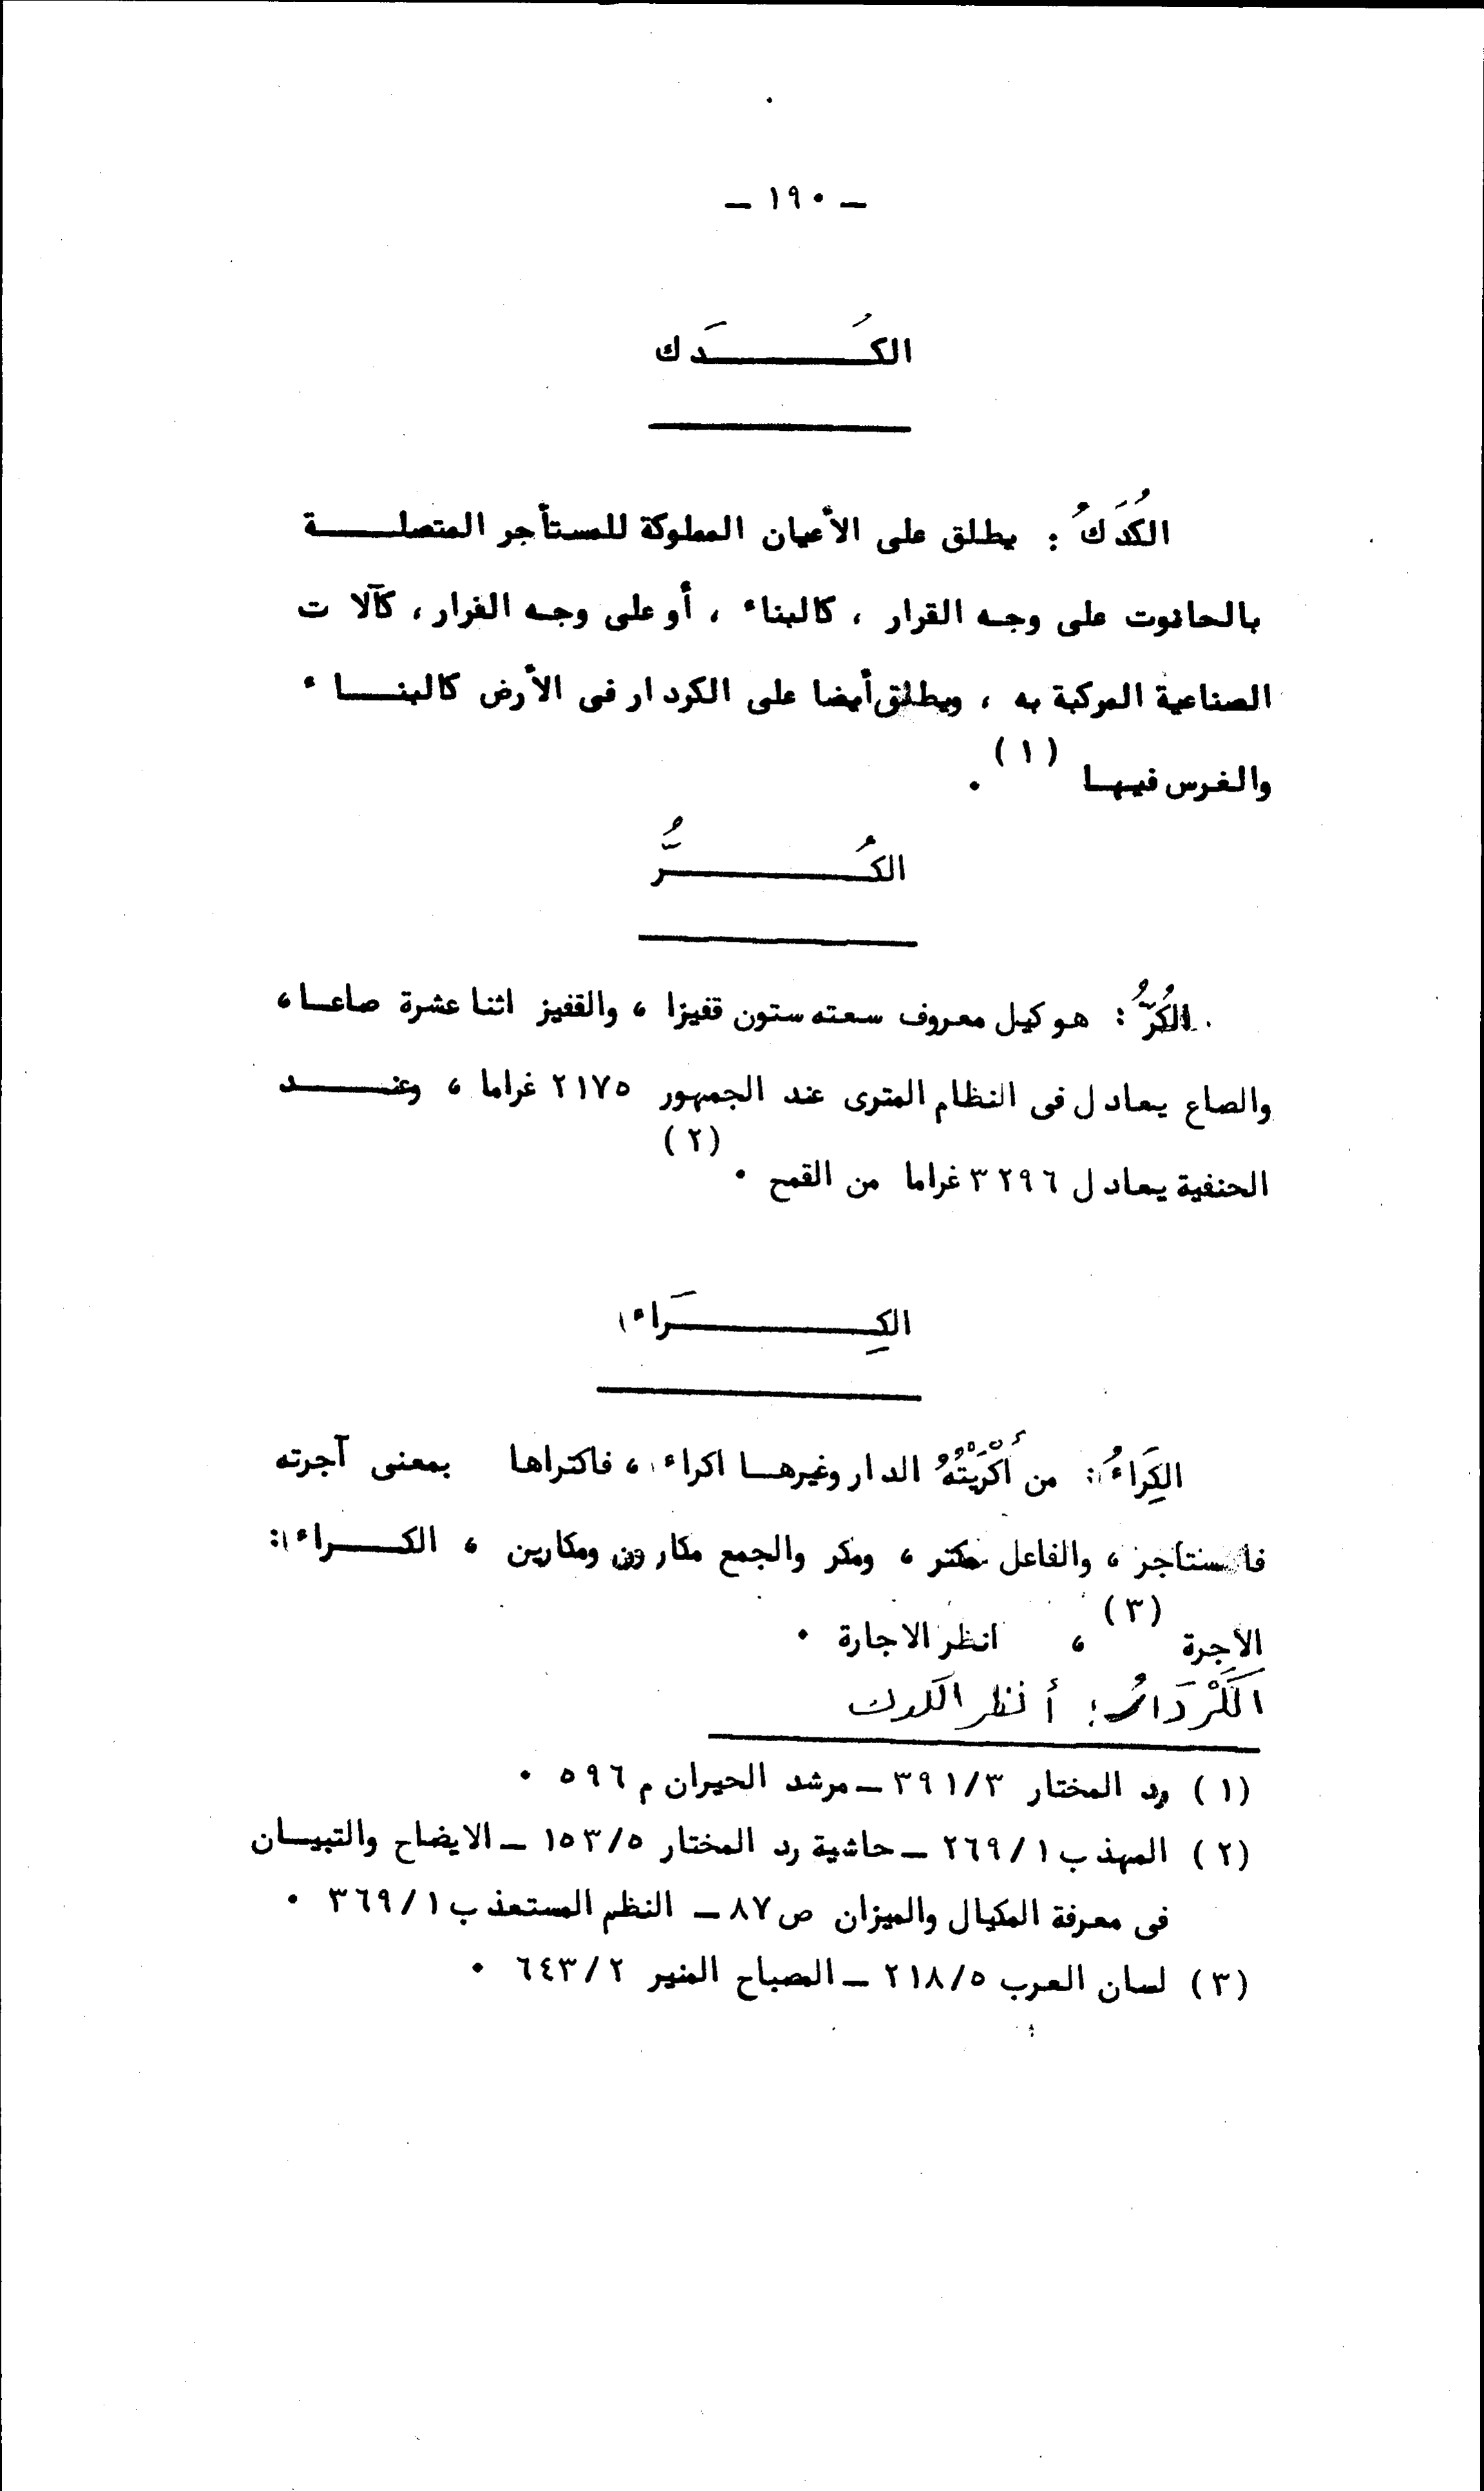 – ١٩٠ –
الكُدَك
الكُدَكُ : يطلق على الأعيان المملوكة للمستأجر المتصلة
بالحانوت على وجه القرار ، كالبناء ، أو على وجه الفرار ، كآلات
الصناعية المركبة به ، ويطلق أيضا على الكردار فى الأرض كالبناء
والغرس فيها (١) .
الكُرُّ
الكُرُّ : هو كيل معروف سعته ستون قفيزا ، والقفيز اثنا عشرة صاعا ،
والصاع يعادل فى النظام المترى عند الجمهور ٢١٧٥ غراما ، وعند
الحنفية يعادل ٣٢٩٦ غراما من القمح . (٢)
الكِرَاء
الكِرَاءُ : من أَكْرَيْتُهُ الدار وغيرها اكراء ، فاكتراها بمعنى آجرته
فاستاجر ، والفاعل مكتر ، ومكر والجمع مكارون ومكارين ، الكراء :
الأجرة (٣) ، انظر الاجارة .
الكَرْدَارُ : أنظر الكدك
(١) رد المختار ٣/٣٩١ – مرشد الحيران م ٥٩٦ .
(٢) المهذب ١/٢٦٩ – حاشية رد المختار ٥/١٥٣ – الايضاح والتبيان
فى معرفة المكيال والميزان ص ٨٧ – النظم المستعذب ١/٣٦٩ .
(٣) لسان العرب ٥/٢١٨ – المصباح المنير ٢/٦٤٣ .